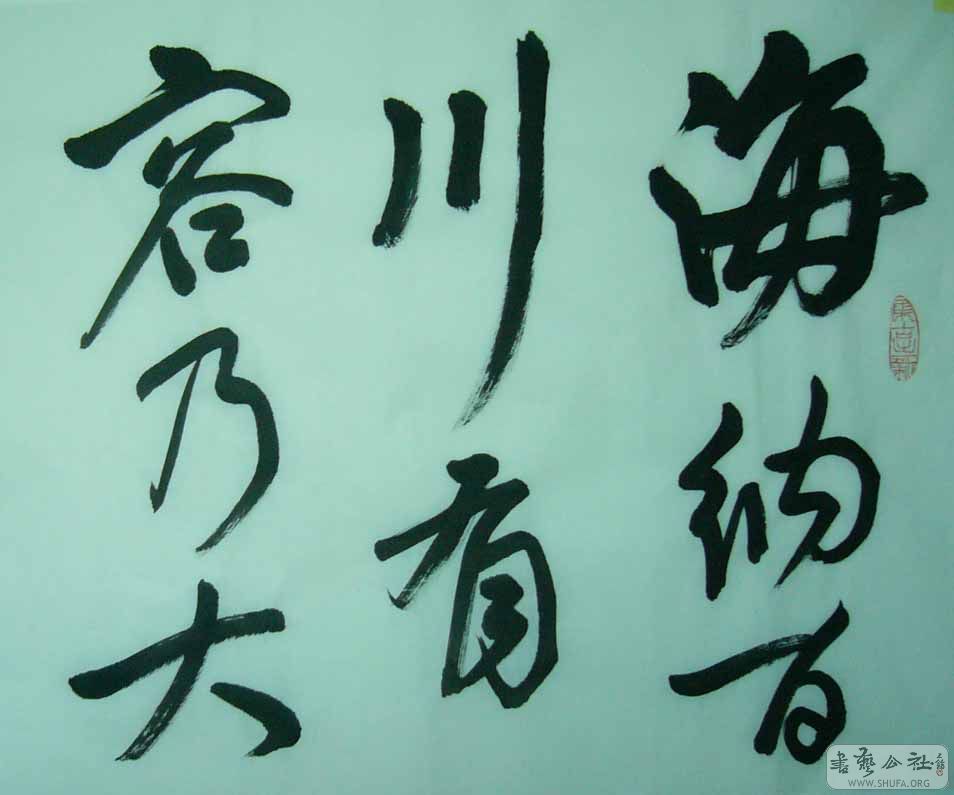 海纳百
川有
容乃大
书艺公社
WWW.SHUFA.ORG